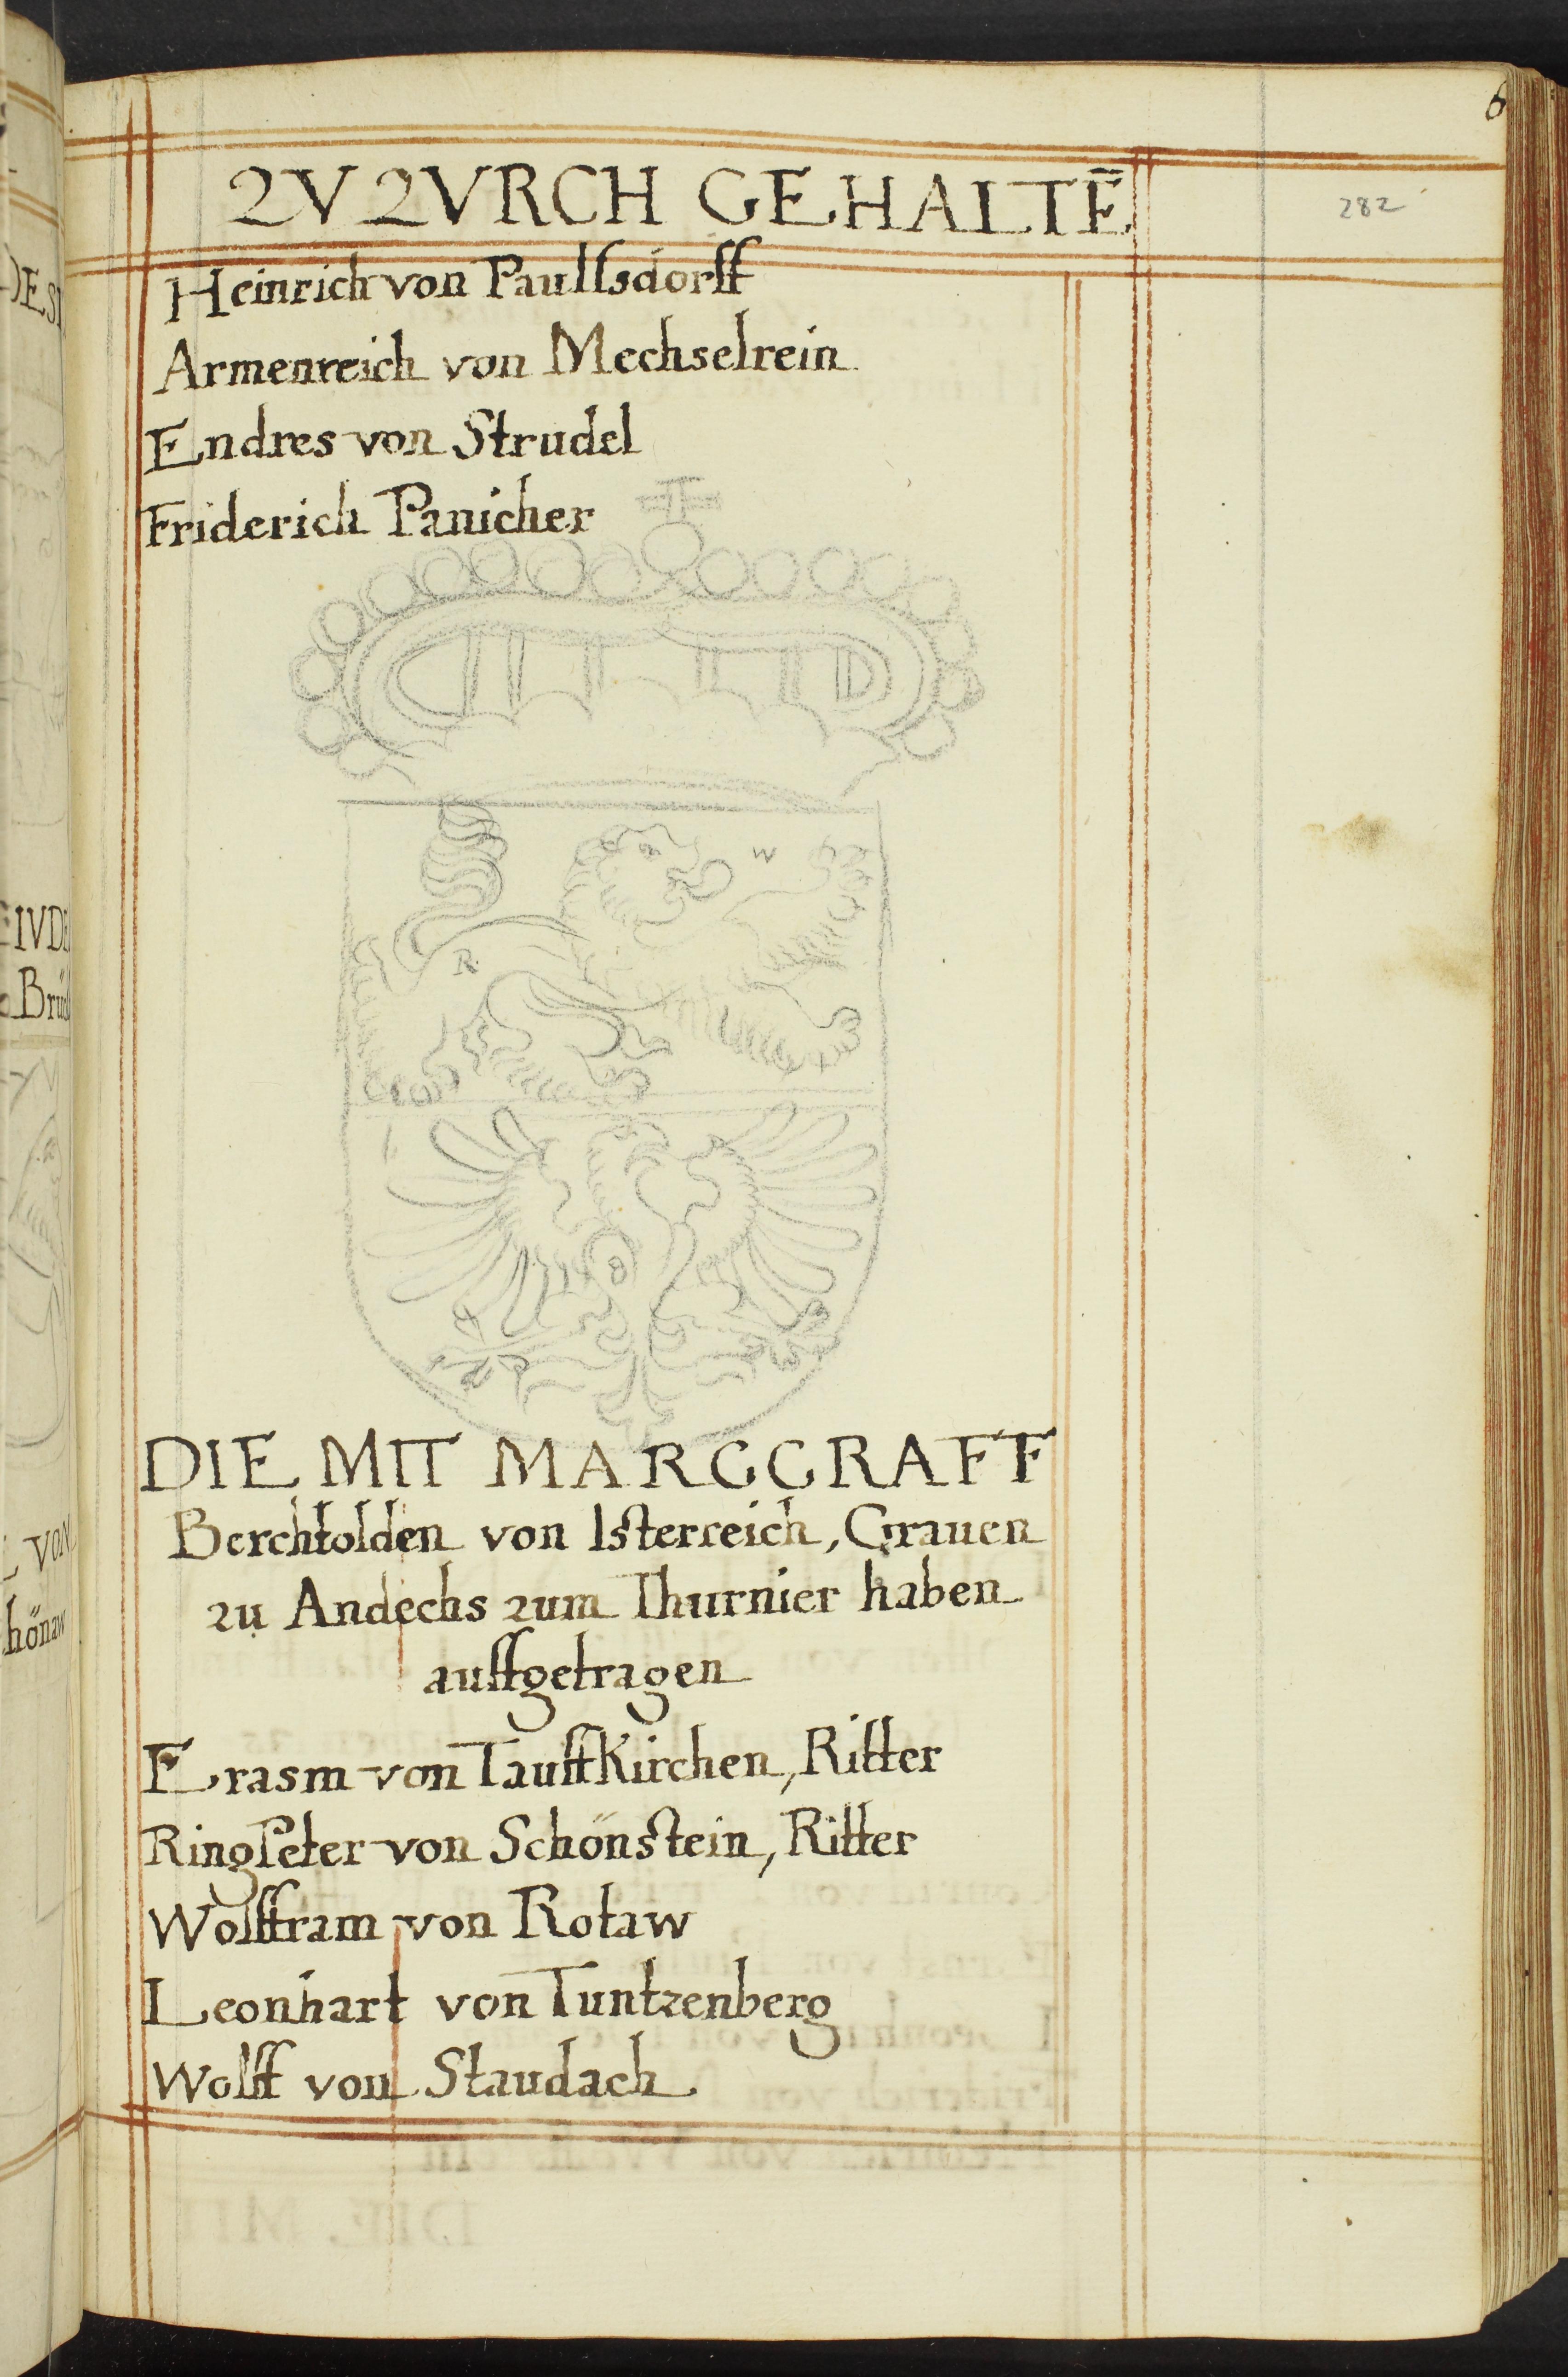 6
ZV ZVRCH GEHALTĒ
282
Heinrich von Paullsdorff
Armenreich von Mechselrein
Endres von Strudel
Friderich Panicher
W
R
B
DIE MIT MARGGRAFF
Berchtolden von Isterreich, Grauen
zu Andechs zum Thurnier haben
auffgetragen
Erasm von Tauffkirchen, Ritter
RingPeter von Schönstein, Ritter
Wolffram von Rotaw
Leonhart von Tuntzenberg
Wolff von Staudach